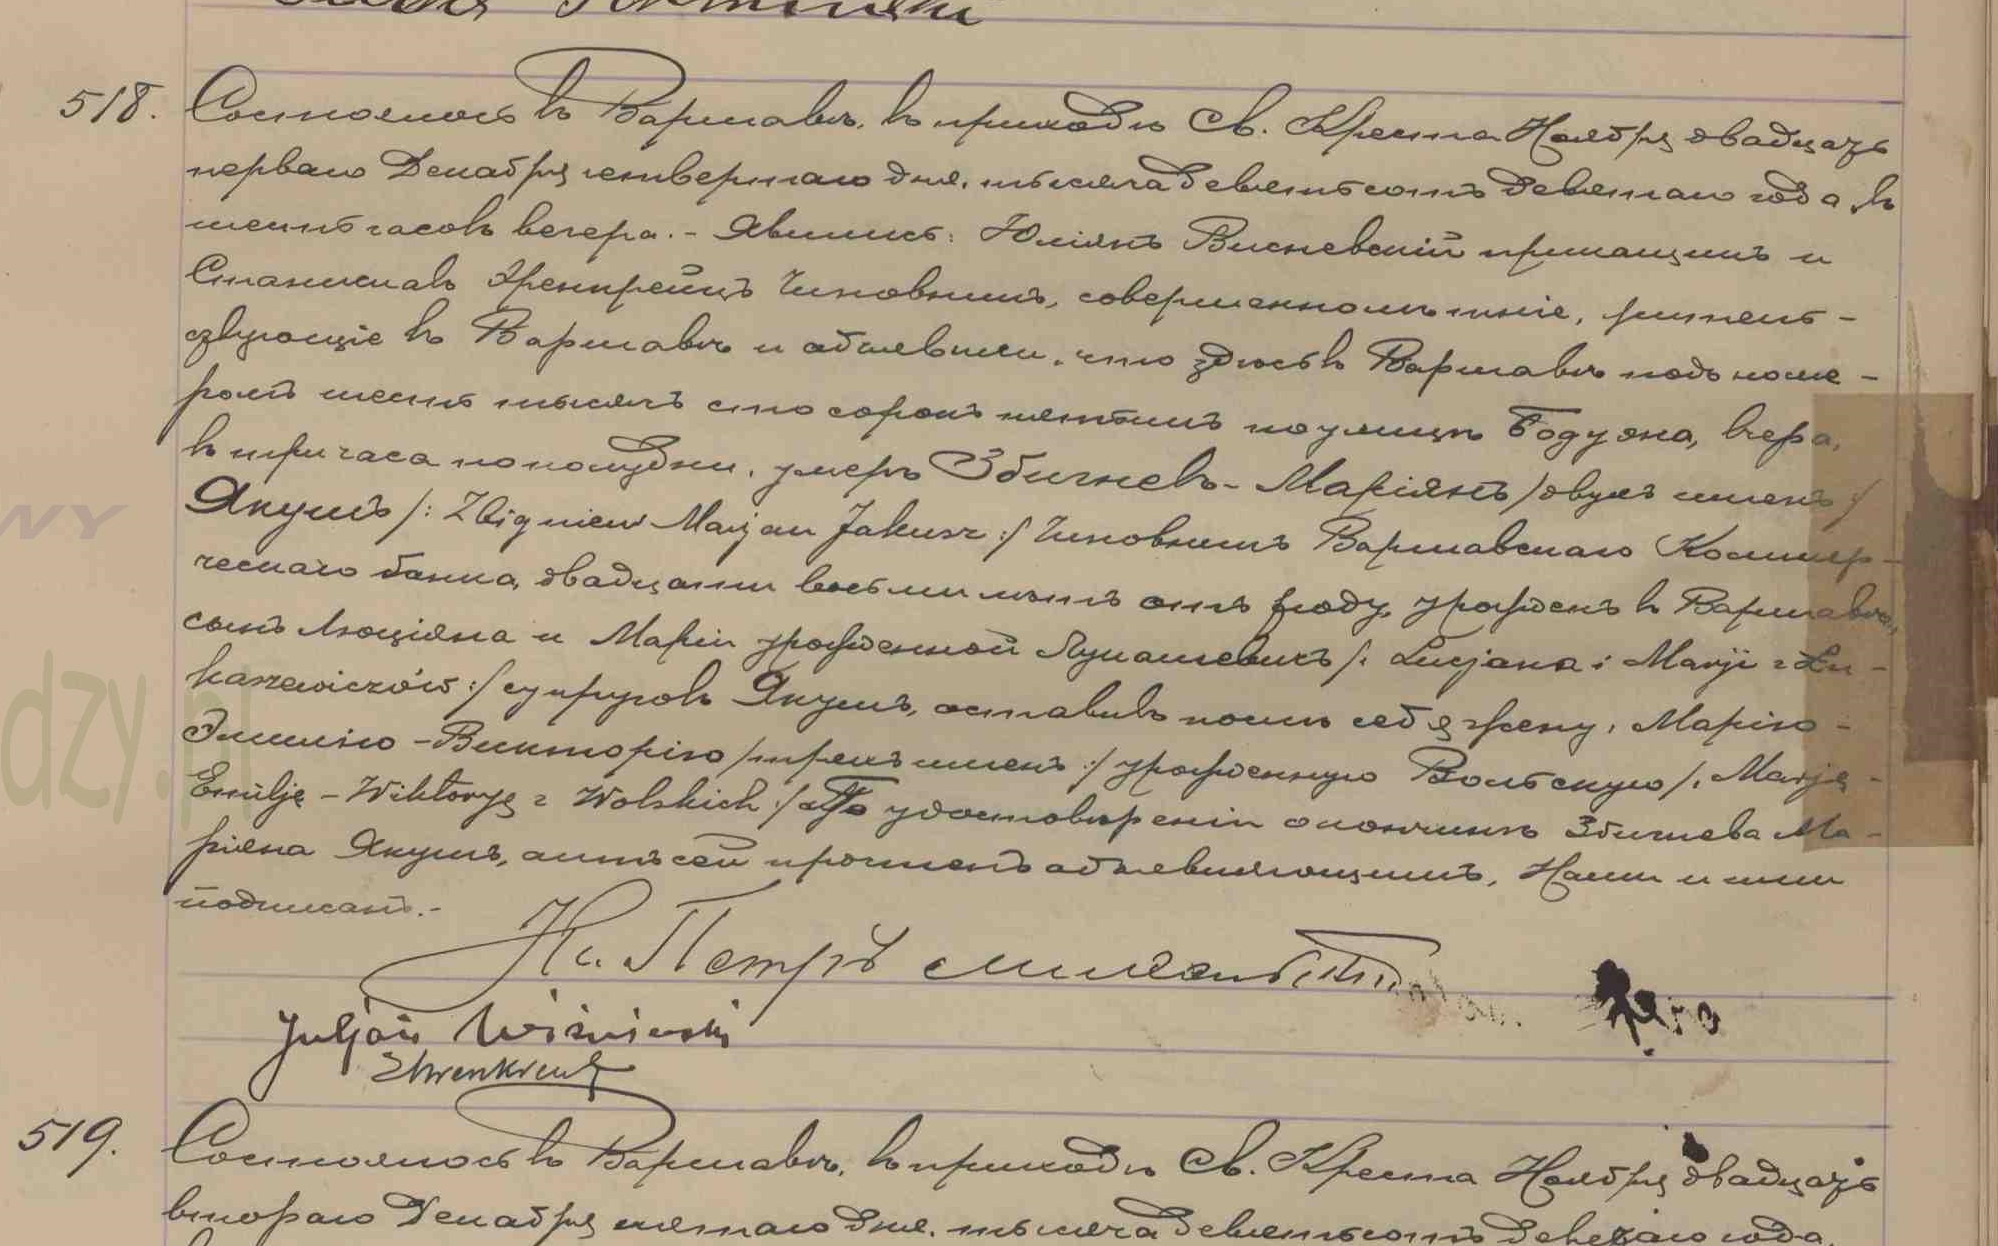 518. Состоялось въ Варшавѣ, въ приходѣ Св. Креста Ноября двадцать
перваго Декабря четвертаго дня, тысяча девятьсотъ девятаго года, въ
шесть часовъ вечера. - Явились: Юліянъ Висневскій прикащикъ и
Станиславъ Эренкрейцъ чиновникъ, совершеннолѣтніе, житель-
ствующіе въ Варшавѣ и объявили, что здѣсь въ Варшавѣ подъ номе-
ромъ шесть тысячъ сто сорокъ пятымъ по улицѣ Бодуэна, вчера,
въ три часа пополудни, умеръ Збигневъ-Маріянъ /двухъ именъ/
Якушъ /: Zbigniew Marjan Jakusz :/ чиновникъ Варшавскаго Коммер-
ческаго банка, двадцати восьми лѣтъ отъ роду, урожденъ въ Варшавѣ,
сынъ Люціяна и Маріи урожденной Лукашевичъ /: Lucjana i Marji z Łu-
kaszewiczów :/ супруговъ Якушъ, оставивъ послѣ себя жену, Марію-
Эмилію-Викторію /трехъ именъ :/ урожденную Вольскую /: Marję-
Emilję - Wiktorję z Wolskich :/ По удостовѣреніи о кончинѣ Збигнева Ма-
ріяна Якушъ, актъ сей прочтенъ объявляющимъ, Нами и ими
подписанъ. -
Кс. Петръ
Juljan Wiśniewski
SEhrenkreutz
519. Состоялось въ Варшавѣ, въ приходѣ Св. Креста Ноября двадцать
второго Декабря пятаго дня, тысяча девятьсотъ девятаго года,